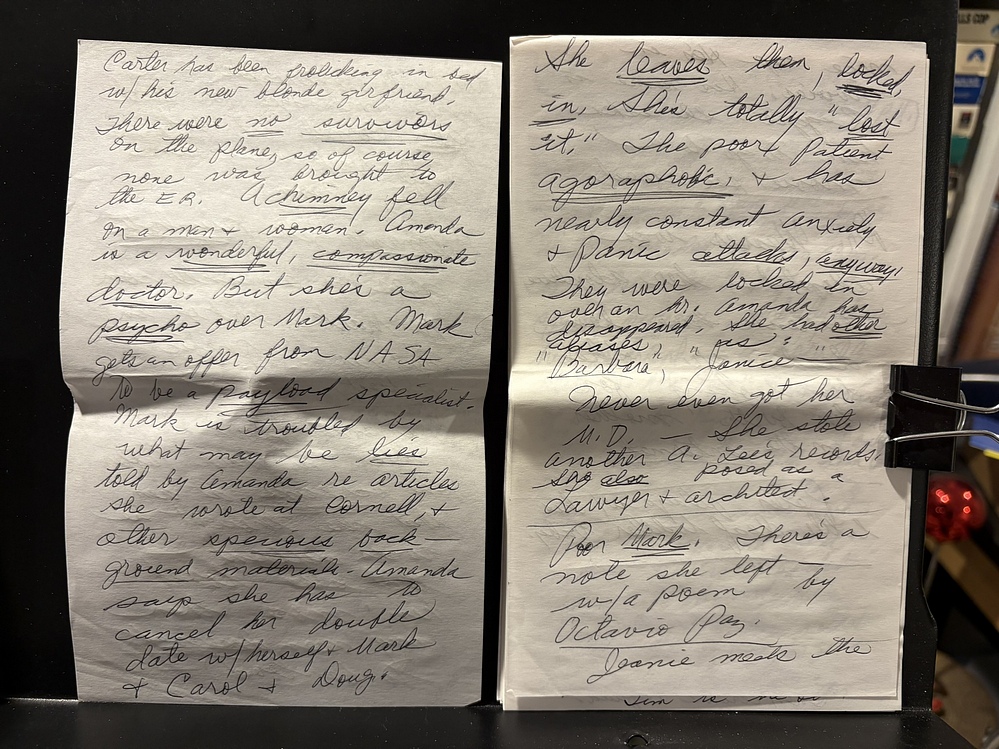 Carter has been frolicking in bed
w/ his new blonde girlfriend.
There were no survivors
on the plane, so of course,
none was brought to
the ER. A chimney fell
on a man + woman. Amanda
is a wonderful, compassionate
doctor. But she's a
psycho over Mark. Mark
gets an offer from NASA
to be a payload specialist.
Mark is troubled by
what may be lies
told by Amanda re articles
she wrote at Cornell, +
other specious back-
ground materials. Amanda
says she has to
cancel her double
date w/ herself + Mark
+ Carol + Doug.
She leaves them, locked
in. She's totally "lost
it." The poor patient
agoraphobic, + has
nearly constant anxiety
+ Panic attacks, anyway!
They were locked in
over an hr. Amanda has
disappeared. She had other
aliases, as:
"Barbara", "Janice"
Never even got her
M.D. — She stole
another A. Lee's records.
She also posed as a
Lawyer + architect.
Poor Mark. There's a
note she left
w/a poem by
Octavio Paz.
Jeanie meets the